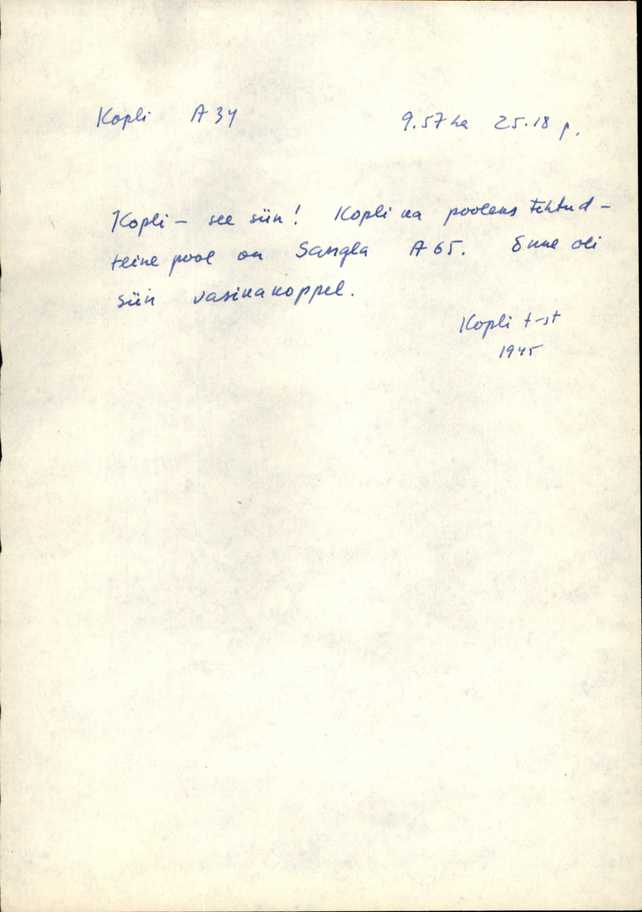 Kopli A 34 9.57 ha 25.18 p.
Kopli – see siin! Kopli ka pooleks tehtud –
teine pool on Sangla A 65. Enne oli
siin vasikakoppel.
Kopli t-st
1945